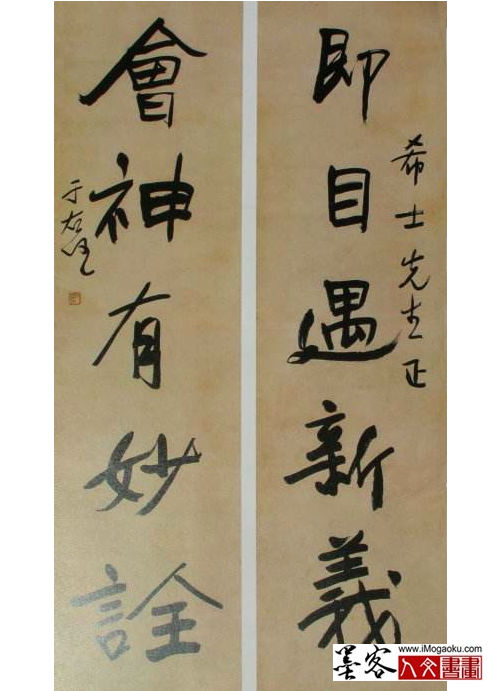 即目遇新義
希士先生正
會神有妙詮
于右任
墨客 www.iMogaoku.com
人文書畫